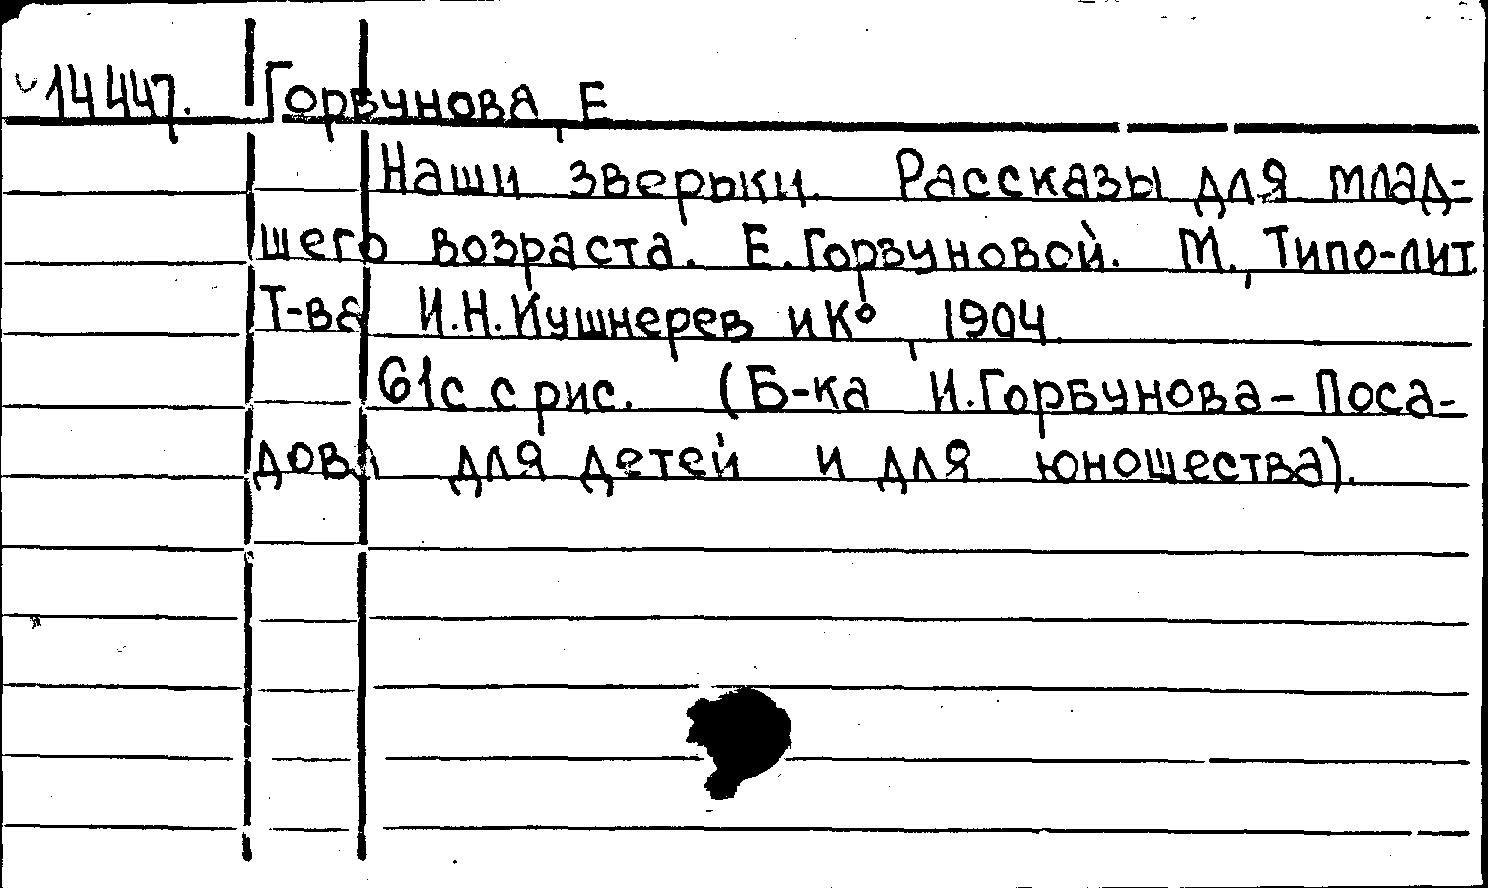 14447. Горбунова, Е
Наши зверьки. Рассказы для млад-
шего возраста. Е.Горбуновой. М., Типо-лит.
Т-ва И.Н.Кушнерев и К°, 1904
61с с рис. (Б-ка И.Горбунова-Поса-
дова для детей и для юношества).